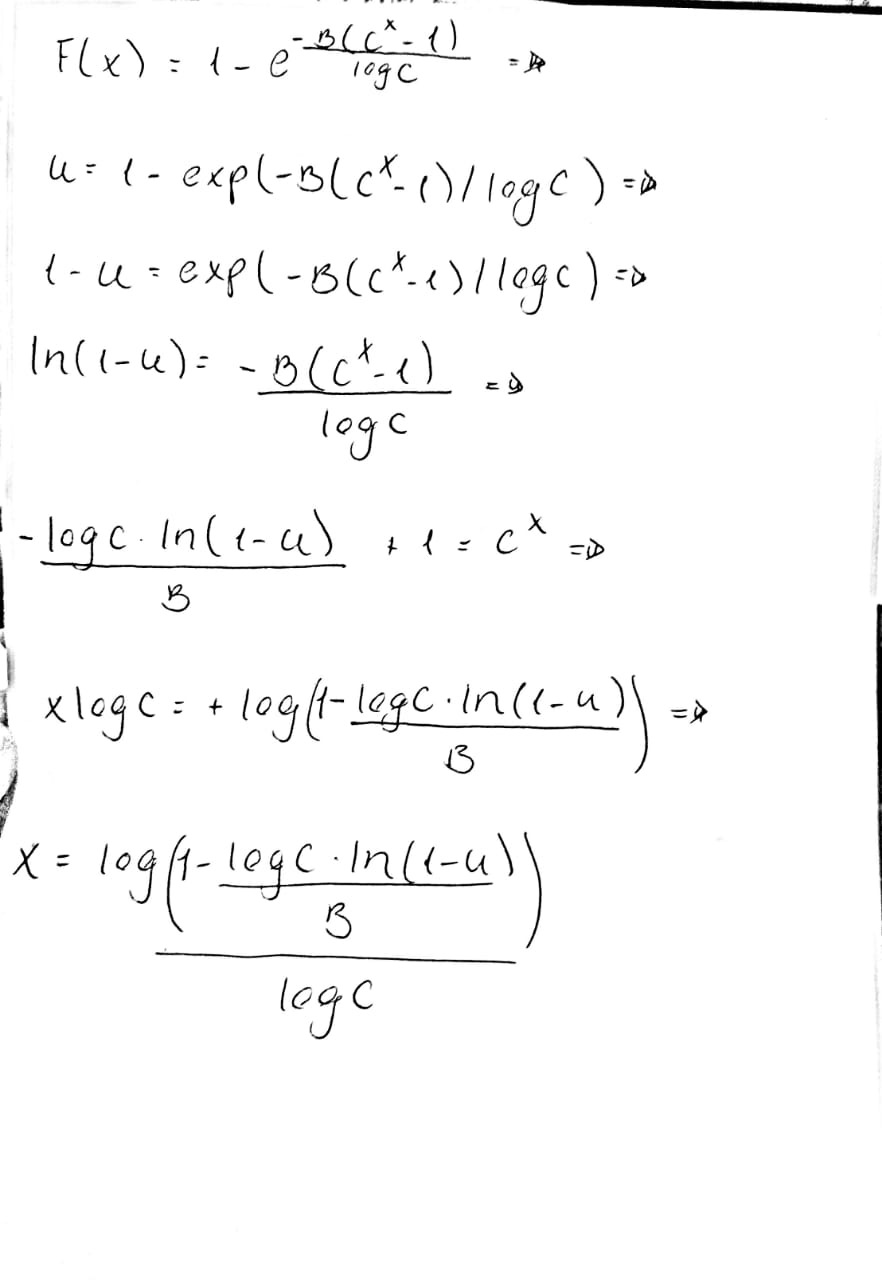 F(x) = 1 - e^(-B(c^x - 1)/log c) =>
u = 1 - exp(-B(c^x - 1)/log c) =>
1 - u = exp(-B(c^x - 1)/log c) =>
ln(1-u) = -B(c^x - 1)/log c =>
-log c · ln(1-u)/B + 1 = c^x =>
x log c = + log(1 - log c · ln(1-u)/B) =>
x = log(1 - log c · ln(1-u)/B)/log c